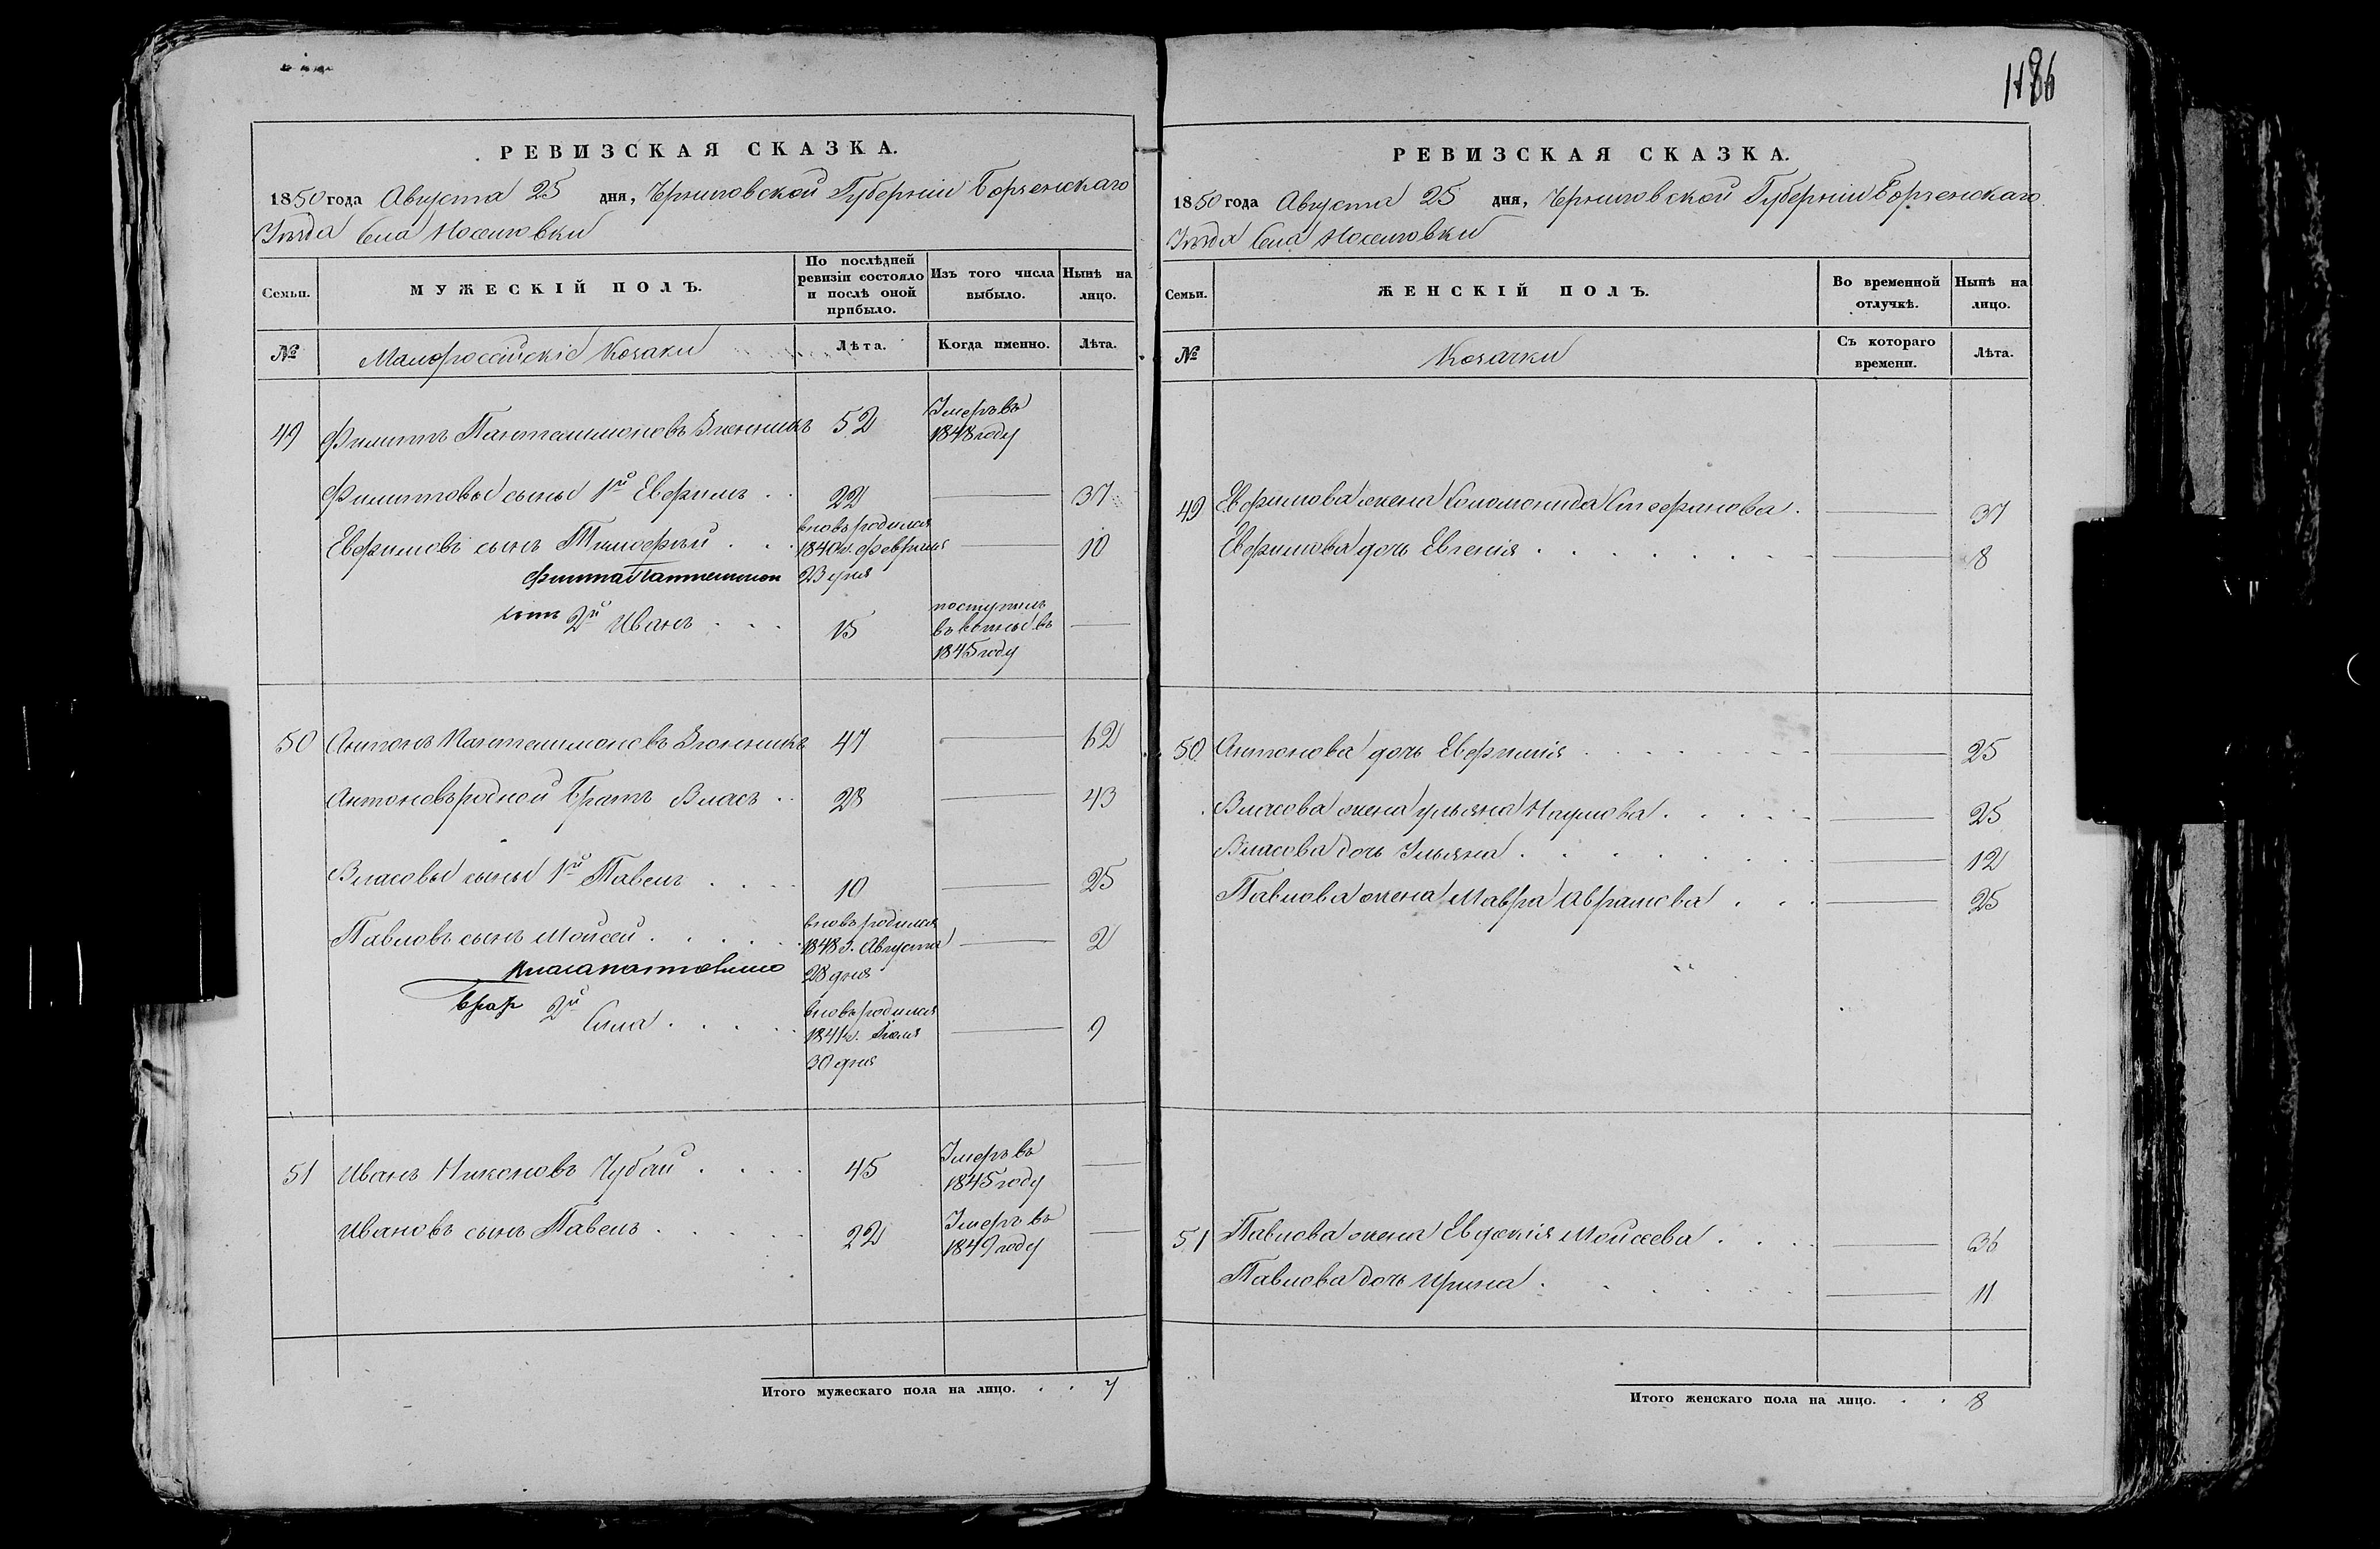 РЕВИЗСКАЯ СКАЗКА.
1850 года Августа 25 дня, Черниговской Губерніи Борзенскаго
Уѣзда Села Носиловки
Семьи.
МУЖЕСКІЙ ПОЛЪ.
По послѣдней ревизіи состояло и послѣ оной прибыло.
Изъ того числа выбыло.
Нынѣ на лицо.
№
Малороссійскіе Козаки
Лѣта.
Когда именно.
Лѣта.
49 Филиппъ Пантелимоновъ 52 Умеръ въ 1848 году
Филиповы сыны 1й Евфимъ . . 22 37
Евфимовъ сынъ Тимофѣй . . . вновь родился 1840 г. февраля 23 дня 10
Филипа Пантелимон
сынъ 2й Иванъ . . . 15 поступилъ въ 1845 году
50 Антонъ Пантелимоновъ 47 62
Антоновъ родной братъ Власъ . . 28 43
Власовы сыны 1й Павелъ . . . . 10 25
Павловъ сынъ Мойсей . . . . . вновь родился 1848 г. Августа 28 дня 2
Власа
2й Сила . . . . . вновь родился 1841 г. Іюля 30 дня 9
51 Иванъ Никоновъ Чубай . . . . 45 Умеръ въ 1845 году
Ивановъ сынъ Павелъ . . . . . 22 Умеръ въ 1849 году
Итого мужескаго пола на лицо. . . 7
РЕВИЗСКАЯ СКАЗКА.
1850 года Августа 25 дня, Черниговской Губерніи Борзенскаго
Уѣзда Села Носиловки
Семьи.
ЖЕНСКІЙ ПОЛЪ.
Во временной отлучкѣ.
Нынѣ на лицо.
№
Козачки
Съ котораго времени.
Лѣта.
49 Евфимова жена Соломонида Стефанова . 37
Евфимова дочь Евгенія . . . . . . . 8
50 Антонова дочь Евфимія . . . . . . 25
Власова жена Ульяна Наумова . . . . . 25
Власова дочь Ульяна . . . . . . . 12
Павлова жена Мавра Абрамова . . . 25
51 Павлова жена Евдокія Мойсеева . . . 36
Павлова дочь Ирина . . . . . . 11
Итого женскаго пола на лицо. . . 8